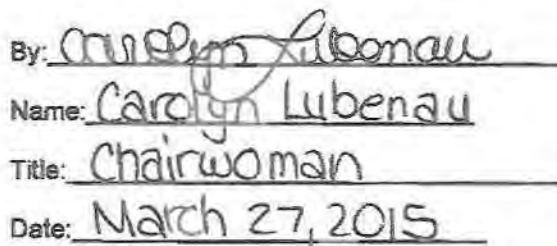 By: Carolyn Lubenau
Name: Carolyn Lubenau
Title: Chairwoman
Date: March 27, 2015